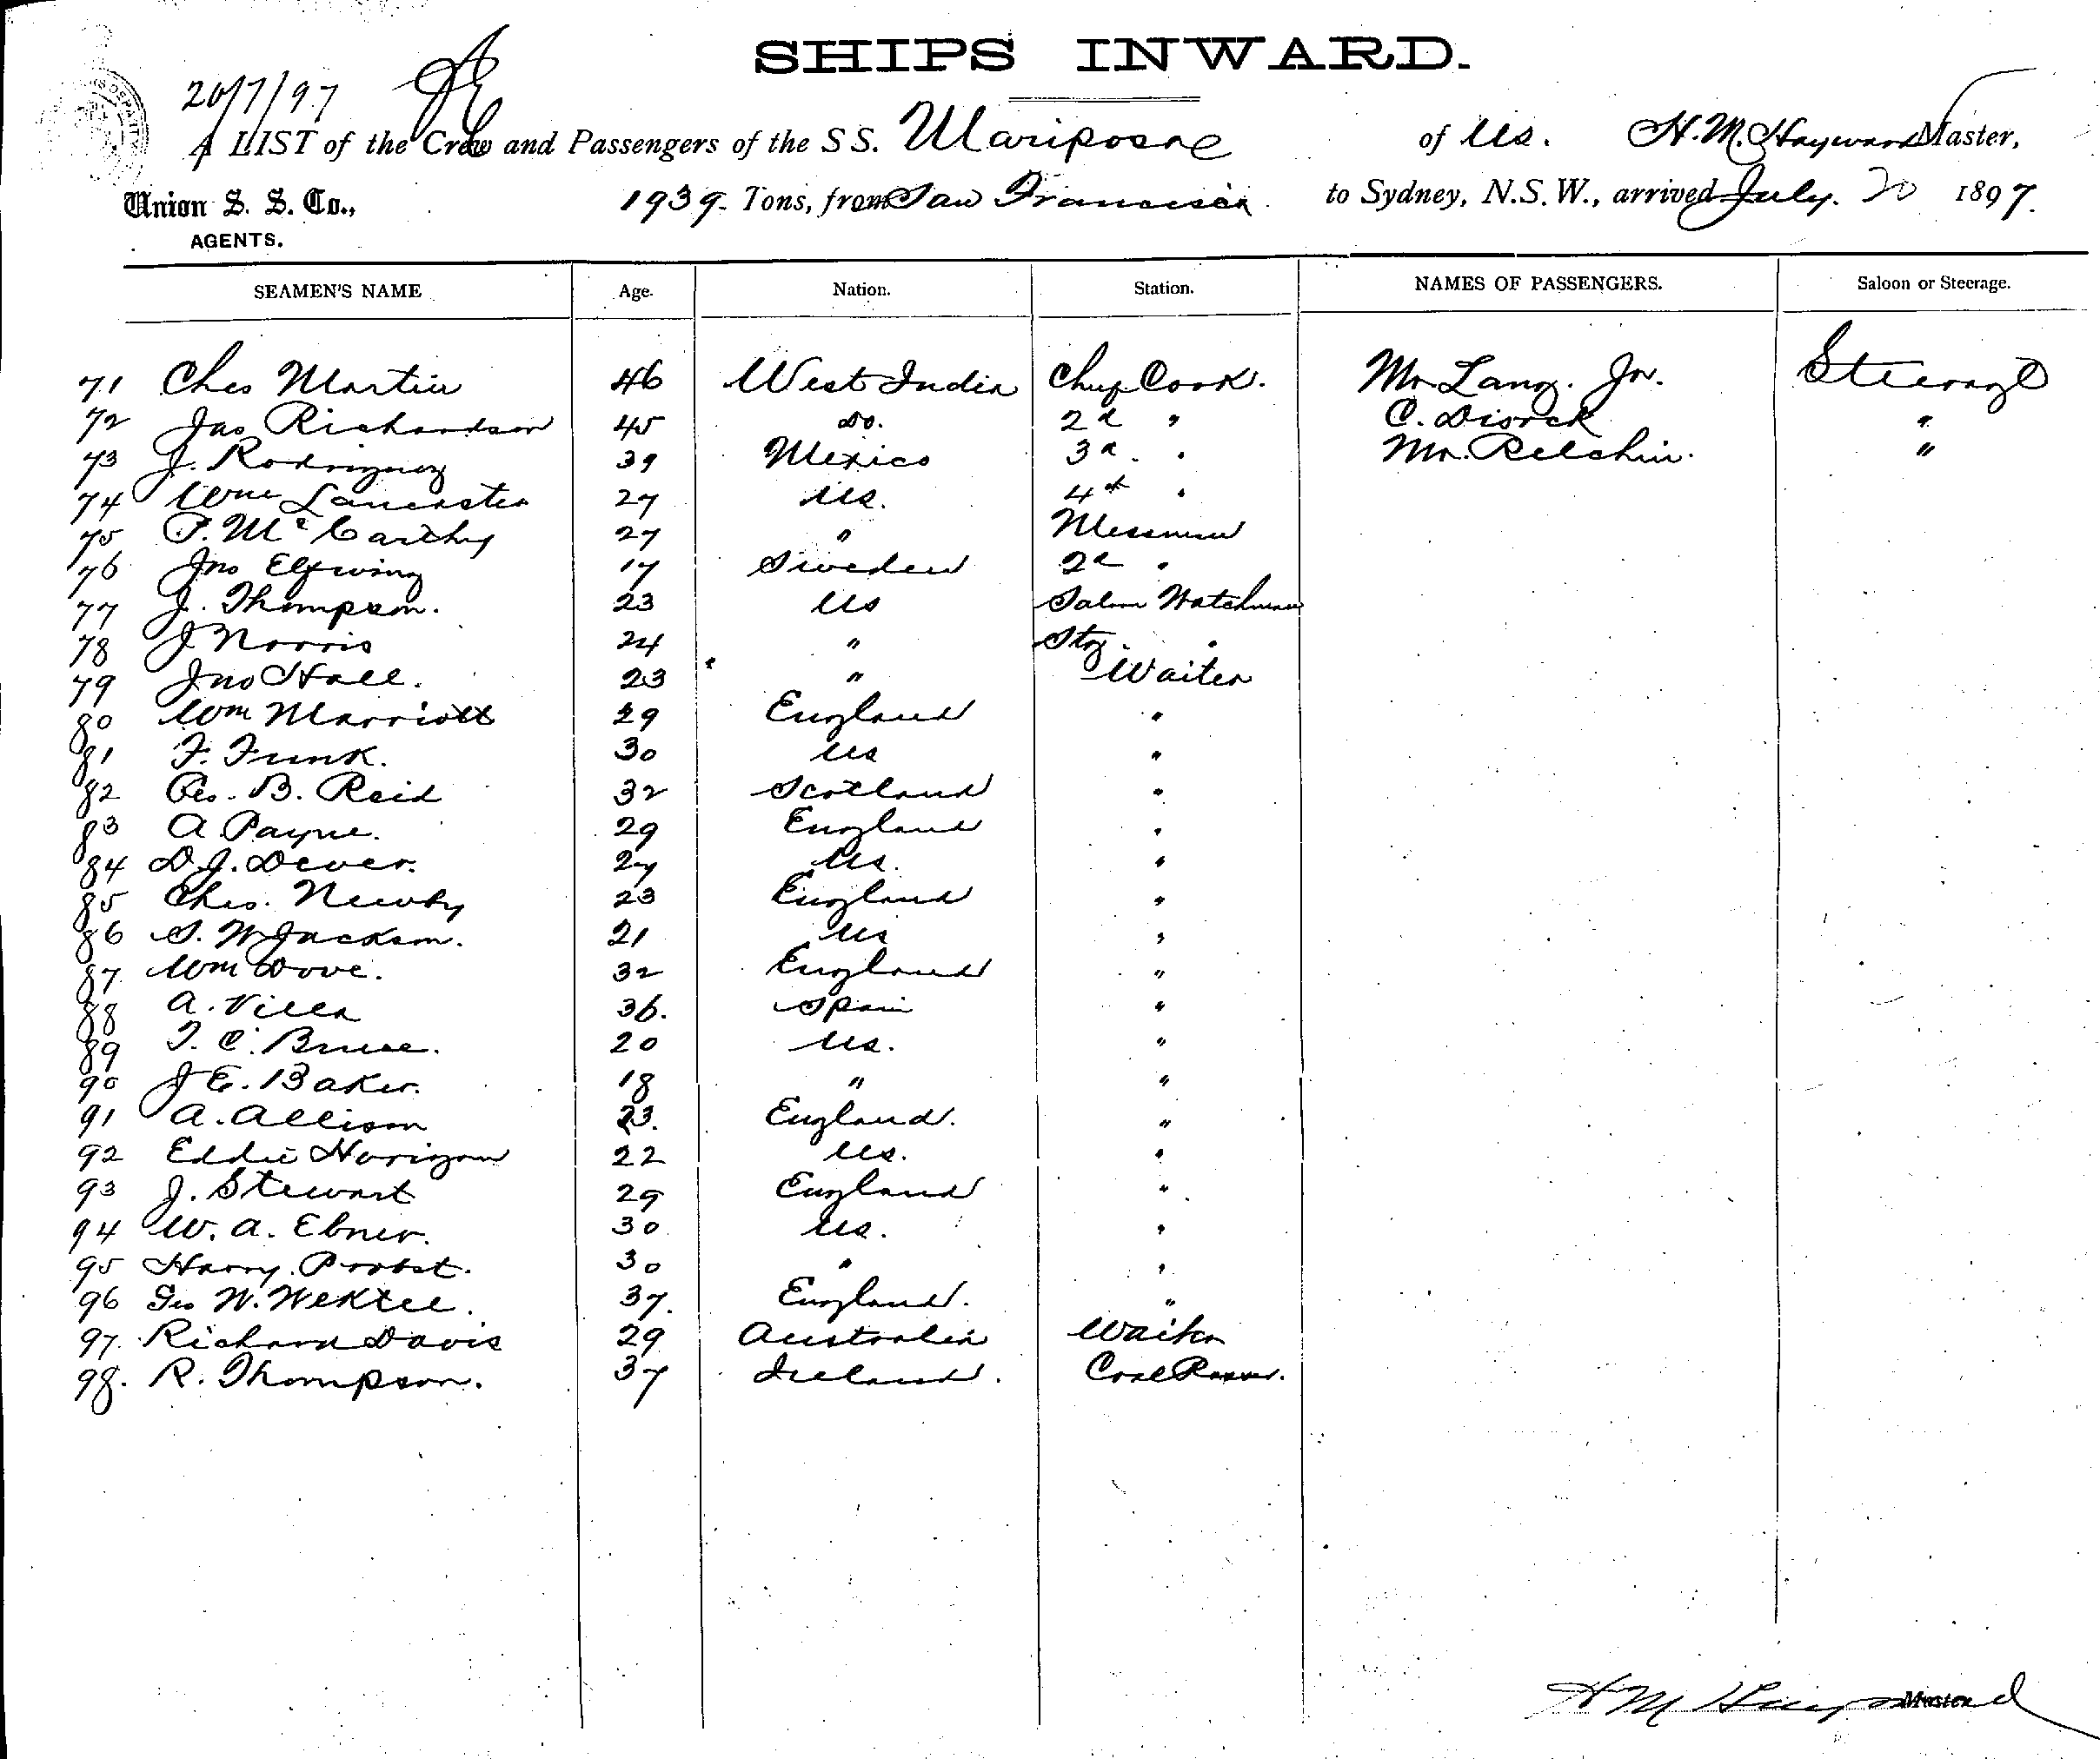 SHIPS INWARD.
20/7/97
A LIST of the Crew and Passengers of the S S. Mariposa of US. H. M. Hayward Master,
Union S. S. Co., 1939 Tons, from San Francisco to Sydney, N.S.W., arrived July. 20 1897.
AGENTS.
SEAMEN'S NAME Age. Nation. Station. NAMES OF PASSENGERS. Saloon or Steerage.
71 Chas Martin 46 West India Chief Cook. Mr Lang. Jr. Steerage
72 Jas Richardson 45 do. 2d " C. "
73 J. Rodriguez 39 Mexico 3d . " Mr. "
74 Wm Lancaster 27 US. 4th "
75 P. McCarthy 27 " Messman
76 Jno Elfwing 17 Sweden 2d "
77 J. Thompson. 23 US Saloon Watchman
78 J Norris 24 " Stg. "
79 Jno Hall. 23 " Waiter
80 Wm Marriott 29 England "
81 F. Funk. 30 US "
82 Geo. B. Reid 32 Scotland "
83 A Payne. 29 England "
84 D. J. Dever. 27 US. "
85 Chas. Newby 23 England "
86 S. W Jackson. 21 US "
87 Wm Dove. 32 England "
88 A. Villa 36. Spain "
89 T. C. Bruce. 20 US. "
90 J E. Baker. 18 " "
91 A. Allison 23. England. "
92 Eddie Horigan 22 US. "
93 J. Stewart 29 England "
94 W. A. Ebner. 30 US. "
95 Harry Probst. 30 " "
96 Geo W. 37. England. "
97. Richard Davis 29 Australia Waiter
98. R. Thompson. 37 Ireland. Coal Passer.
H M Hayward Master